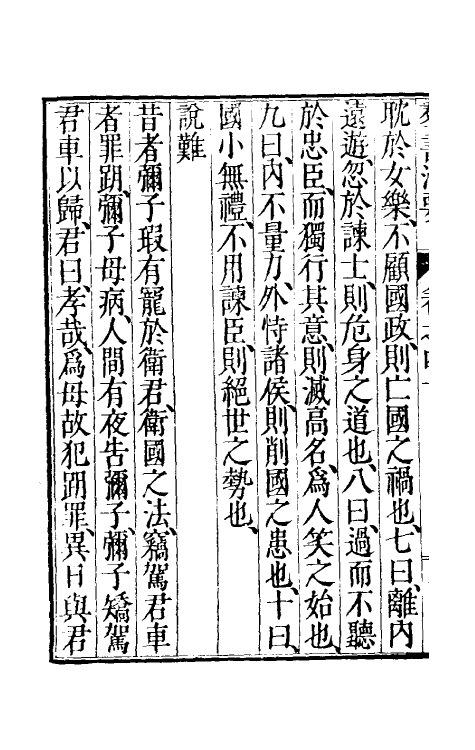 群書治要 卷之四十
耽於女樂、不顧國政、則亡國之禍也、七曰、離內
遠遊、忽於諫士、則危身之道也、八曰、過而不聽
於忠臣、而獨行其意、則滅高名、爲人笑之始也、
九曰、內不量力、外恃諸侯、則削國之患也、十曰、
國小無禮、不用諫臣、則絕世之勢也、
說難
昔者彌子瑕有寵於衛君、衛國之法、竊駕君車
者罪跀、彌子母病、人間有夜告彌子、彌子矯駕
君車以歸、君曰、孝哉、爲母故犯跀罪、異日與君